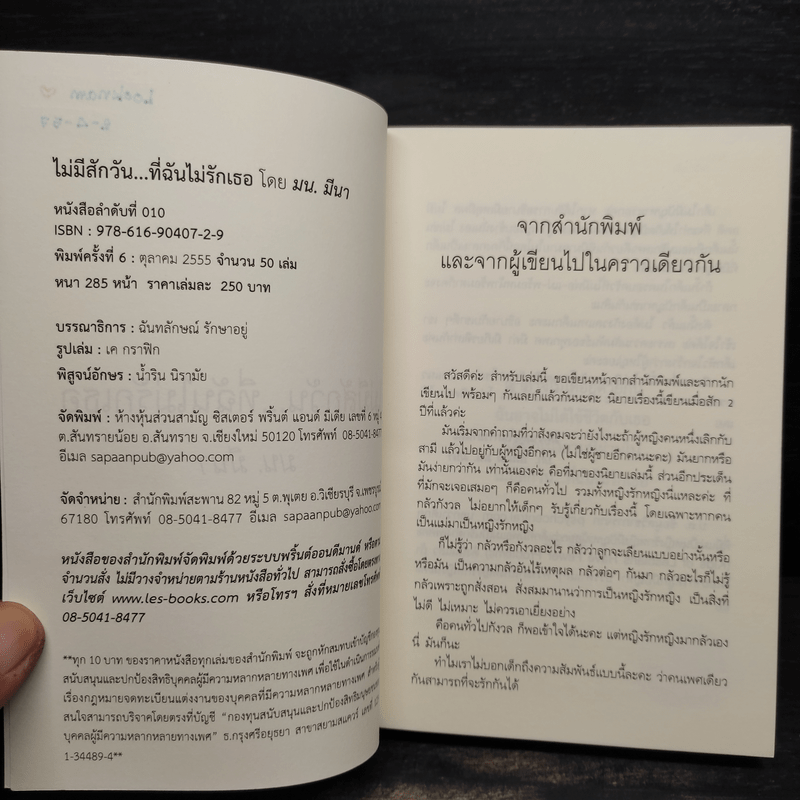 ไม่มีสักวัน...ที่ฉันไม่รักเธอ โดย มน. มีนา
หนังสือลำดับที่ 010
ISBN : 978-616-90407-2-9
พิมพ์ครั้งที่ 6 : ตุลาคม 2555 จำนวน 50 เล่ม
หนา 285 หน้า ราคาเล่มละ 250 บาท
บรรณาธิการ : ฉันทลักษณ์ รักษาอยู่
รูปเล่ม : เค กราฟิก
พิสูจน์อักษร : น้ำริน นิรามัย
จัดพิมพ์ : ห้างหุ้นส่วนสามัญ ซิสเตอร์ พริ้นต์ แอนด์ มีเดีย เลขที่ 6 หมู่
ต.สันทรายน้อย อ.สันทราย จ.เชียงใหม่ 50120 โทรศัพท์ 08-5041-8477
อีเมล sapaanpub@yahoo.com
จัดจำหน่าย : สำนักพิมพ์สะพาน 82 หมู่ 5 ต.พุเตย อ.วิเชียรบุรี
67180 โทรศัพท์ 08-5041-8477 อีเมล sapaanpub@yahoo.com
หนังสือของสำนักพิมพ์จัดพิมพ์ด้วยระบบพริ้นต์ออนดีมานด์
จำนวนสั่ง ไม่มีวางจำหน่ายตามร้านหนังสือทั่วไป สามารถสั่งซื้อโดยตรง
เว็บไซต์ www.les-books.com หรือโทรฯ สั่งที่หมายเลขโทรศัพท์
08-5041-8477
**ทุก 10 บาท ของราคาหนังสือทุกเล่มของสำนักพิมพ์ จะถูกหักสมทบเข้าบัญชี
สนับสนุนและปกป้องสิทธิบุคคลผู้มีความหลากหลายทางเพศ เพื่อใช้ในดำเนินการ
เรื่องกฎหมายจดทะเบียนแต่งงานของบุคคลที่มีความหลากหลายทางเพศ
สนใจสามารถบริจาคโดยตรงที่บัญชี "กองทุนสนับสนุนและปกป้องสิทธิมนุษยชน
บุคคลผู้มีความหลากหลายทางเพศ" ธ.กรุงศรีอยุธยา สาขาสยามสแควร์ เลขที่
1-34489-4**
จากสำนักพิมพ์
และจากผู้เขียนไปในคราวเดียวกัน
สวัสดีค่ะ สำหรับเล่มนี้ ขอเขียนหน้าจากสำนักพิมพ์และจากนัก
เขียนไป พร้อมๆ กันเลยก็แล้วกันนะคะ นิยายเรื่องนี้เขียนเมื่อสัก 2
ปีที่แล้วค่ะ
มันเริ่มจากคำถามที่ว่าสังคมจะว่ายังไงนะถ้าผู้หญิงคนหนึ่งเลิกกับ
สามี แล้วไปอยู่กับผู้หญิงอีกคน (ไม่ใช่ผู้ชายอีกคนนะคะ) มันยากหรือ
มันง่ายกว่ากัน เท่านั้นเองค่ะ คือที่มาของนิยายเล่มนี้ ส่วนอีกประเด็น
ที่มักจะเจอเสมอๆ ก็คือคนทั่วไป รวมทั้งหญิงรักหญิงนี่แหละค่ะ ที่
กลัวกังวล ไม่อยากให้เด็กๆ รับรู้เกี่ยวกับเรื่องนี้ โดยเฉพาะหากคน
เป็นแม่มาเป็นหญิงรักหญิง
ก็ไม่รู้ว่า กลัวหรือกังวลอะไร กลัวว่าลูกจะเลียนแบบอย่างนั้นหรือ
หรือมัน เป็นความกลัวอันไร้เหตุผล กลัวต่อๆ กันมา กลัวอะไรก็ไม่รู้
กลัวเพราะถูกสั่งสอน สั่งสมมานานว่าการเป็นหญิงรักหญิง เป็นสิ่งที่
ไม่ดี ไม่เหมาะ ไม่ควรเอาเยี่ยงอย่าง
คือคนทั่วไปกังวล ก็พอเข้าใจได้นะคะ แต่หญิงรักหญิงมากลัวเอง
นี่ มันก็นะ
ทำไมเราไม่บอกเด็กถึงความสัมพันธ์แบบนี้ละคะ ว่าคนเพศเดียว
กันสามารถที่จะรักกันได้